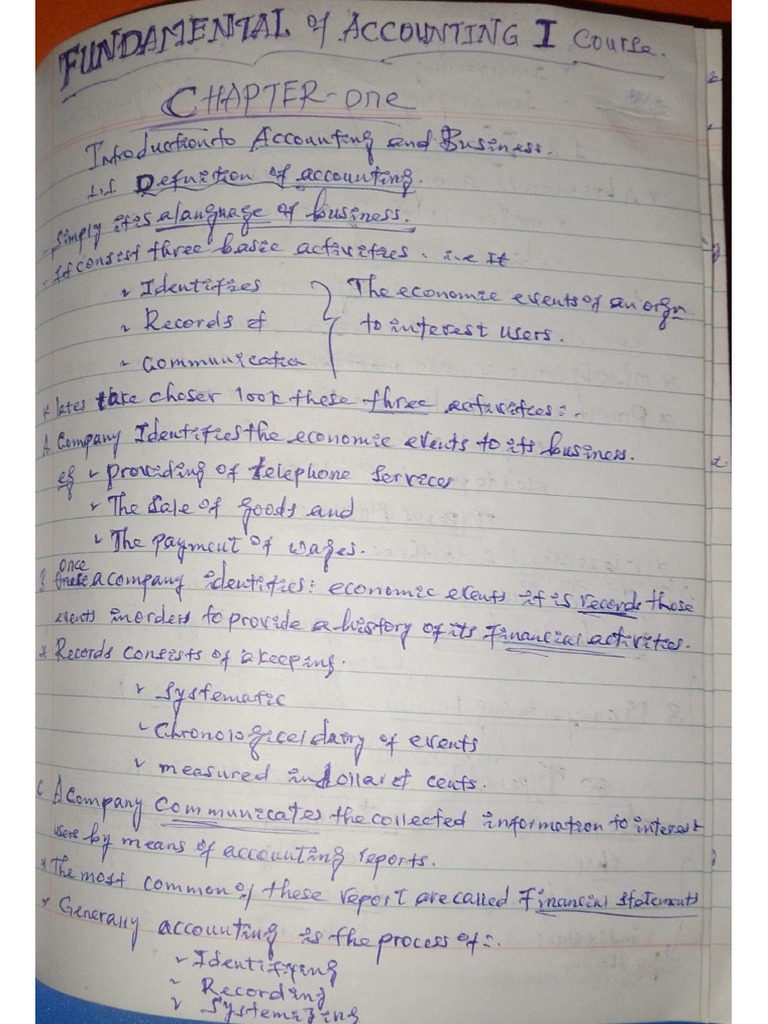 FUNDAMENTAL of ACCOUNTING I Course.
CHAPTER-one
Introduction to Accounting and Business.
1.1 Defunction of accounting.
- Simply it is a language of business.
- It consist three basic activities. i.e It
✓ Identifies
The economic events of an orgn
✓ Records &
to interest users.
✓ Communication
* lates take choser look these three activities:.
A. Company Identifies the economic events to its business.
eg ✓ providing of telephone services
✓ The sale of goods and
✓ The payment of wages.
B once a company identifies: economic events it is records those
events in orders to provide a history of its financial activities.
* Records consists of a keeping.
✓ Systematic
✓ Chronological dairy of events
✓ measured in dollar & cents.
C A company communicates the collected information to interest
users by means of accounting reports.
* The most common of these report are called Financial statements
* Generally accounting is the process of:.
✓ Identifying
✓ Recording
✓ Systemizing